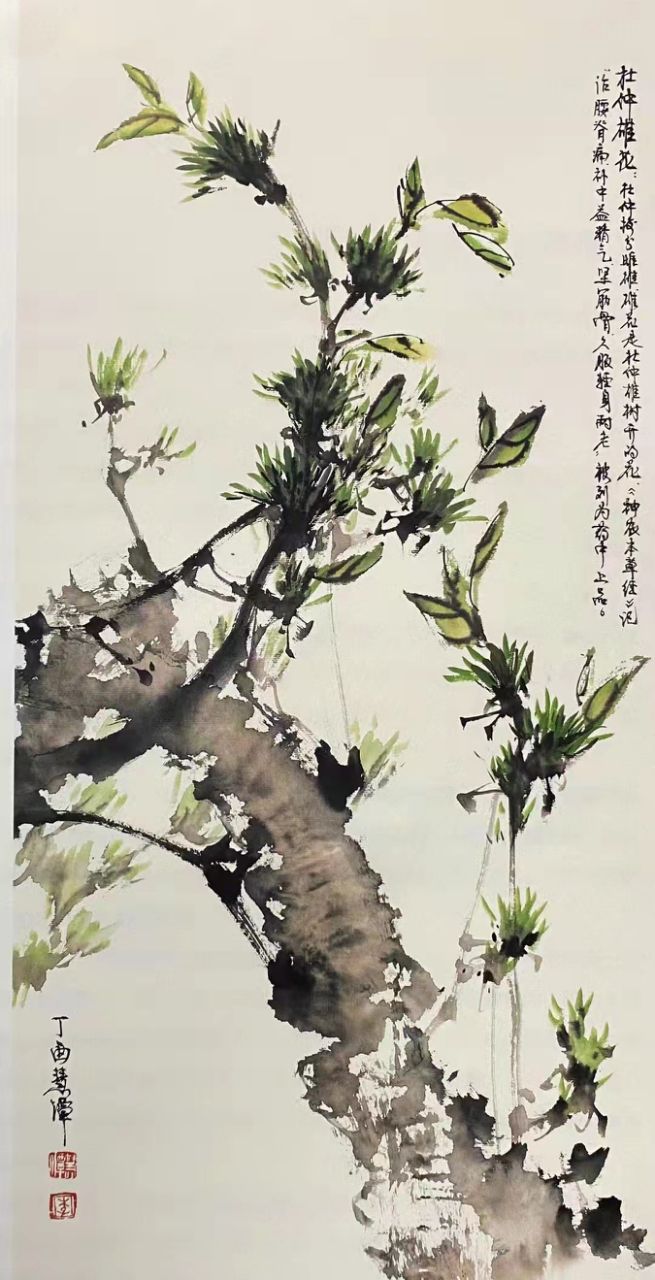 杜仲雄花：杜仲树分雌雄雄花是杜仲雄树开的花。《神农本草经》记
治腰脊痛补中益精气坚筋骨久服轻身耐老，被列为药中上品。
丁酉慧潭